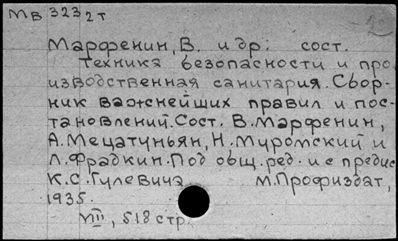 МВ 323 2т
Марфенин, В. и др: сост.
Техника безопасности и про
изводственная санитария. Сбор-
ник важнейших правил и пос-
тановлений. Сост. В. Марфенин,
А. Мецатуньян, Н. Муромский и
Л. Фрадкин. Под общ. ред. и с предис
К. С. Гулевича М. Профиздат,
1935.
VIII, 518 стр.